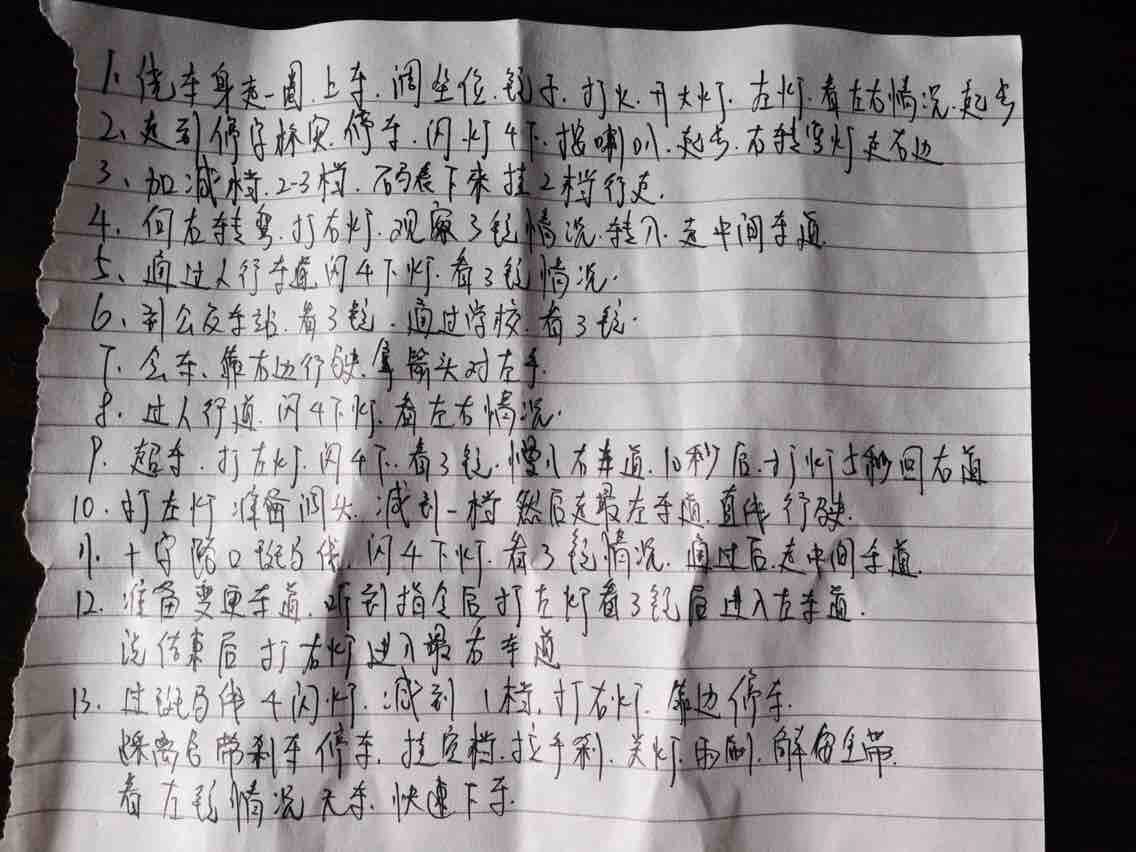 1、绕车身走一圈.上车.调坐位.镜子.打火.开大灯.左灯.看左右情况.起步
2、走到停字标实.停车.闪灯4下.按喇叭.起步.右转弯灯走右边
3、加减档.2-3档.石码表下来挂2档行走.
4、向左转弯.打右灯.观察3镜情况.转入.走中间车道
5、通过人行车道闪4下灯.看3镜情况.
6、到公交车站.看3镜.通过学校.看3镜.
7.会车、靠右边行驶.箭头对左手.
8.过人行道.闪4下灯.看左右情况.
9.超车.打左灯.闪4下.看3镜.慢入左车道.10秒后.打灯5秒回右道
10.打左灯准备调头.减到一档然后走最左车道.直线行驶.
11.十字路口斑马线.闪4下灯.看3镜情况.通过后.走中间车道.
12.准备变更车道.听到指令后打左灯看3镜后进入左车道.
说结束后打右灯进入最右车道
13.过斑马线4闪灯.减到1档.打右灯.靠边停车.
踩离合带刹车停车.挂空档.拉手刹.关灯.雨刷.解安全带.
看左镜情况无车.快速下车.